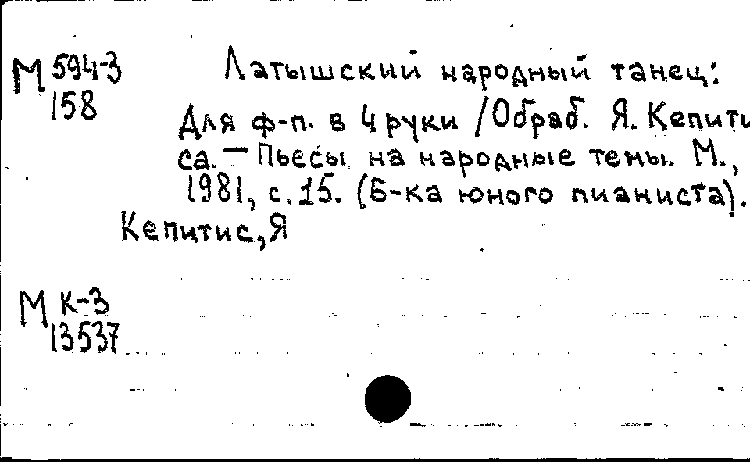 М 594-3 Латышский народный танец:
158
Для ф-п. в 4 руки / Обраб. Я. Кепити
са. — Пьесы на народные темы. М.,
1981, с. 15. (Б-ка юного пианиста).
Кепитис, Я
М К-3
13537